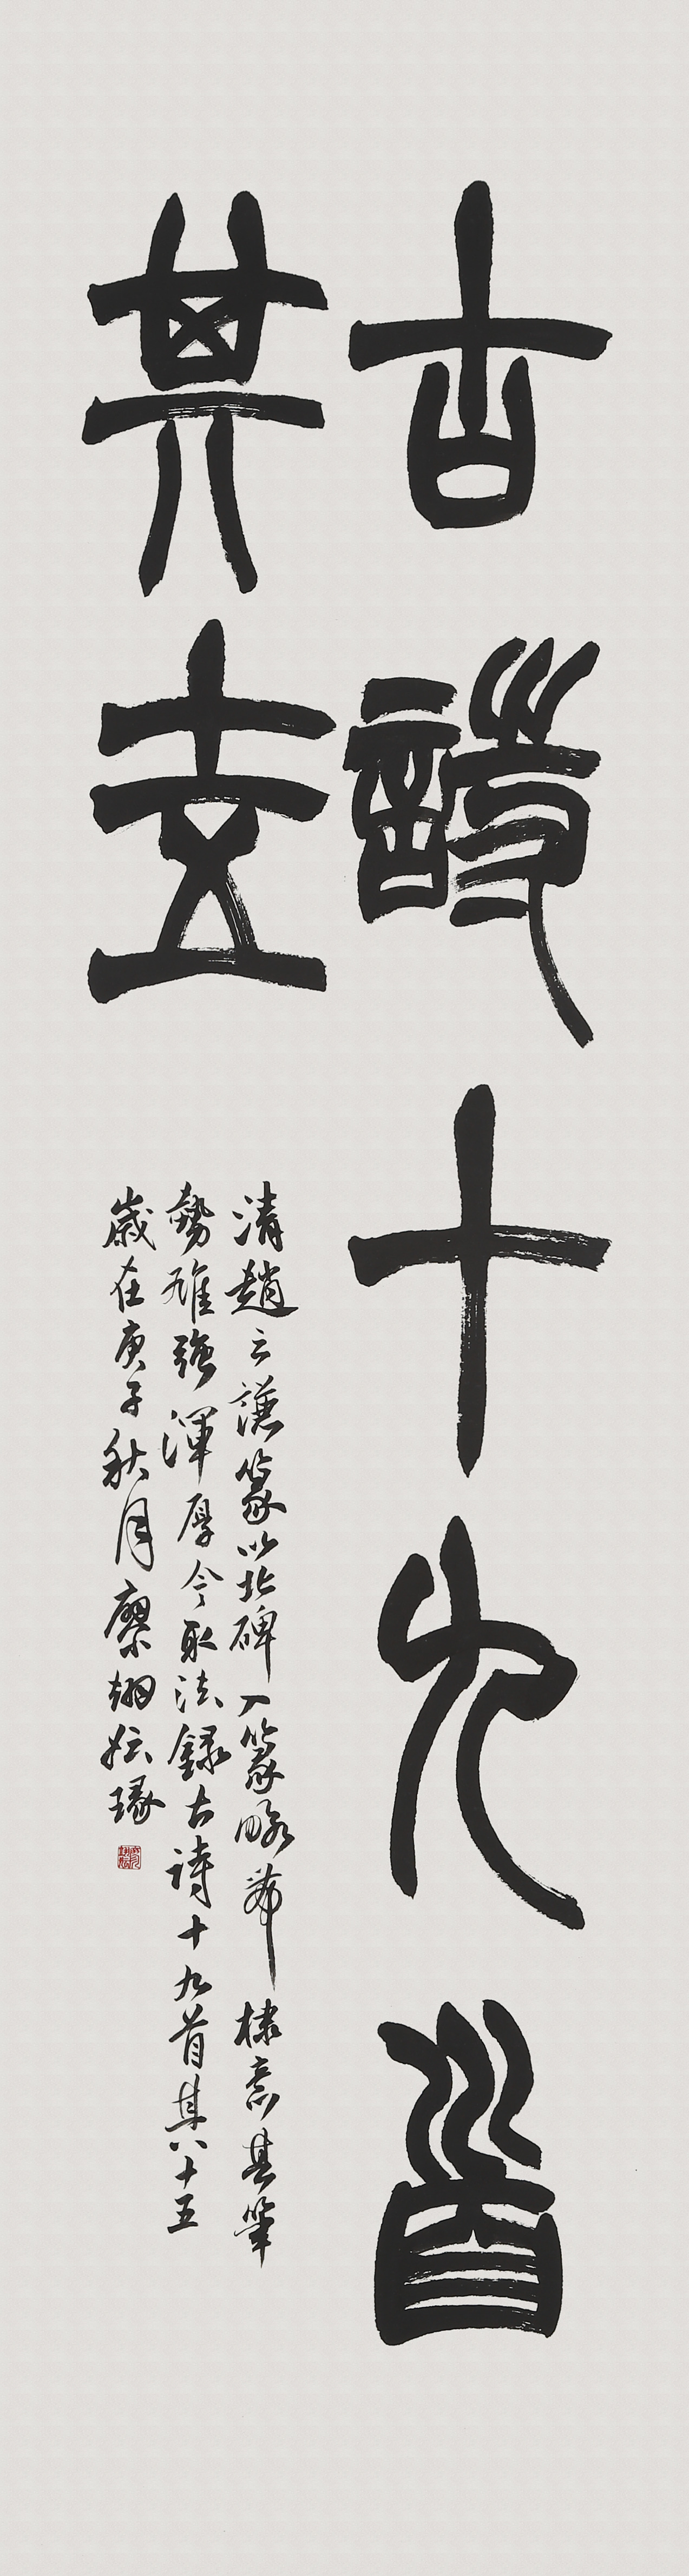 古詩十九首
其十五
清趙之謙篆以北碑入篆略帶棣意其筆
勢雄強渾厚今取法録古詩十九首其十五
歲在庚子秋月廖翊妘瑑